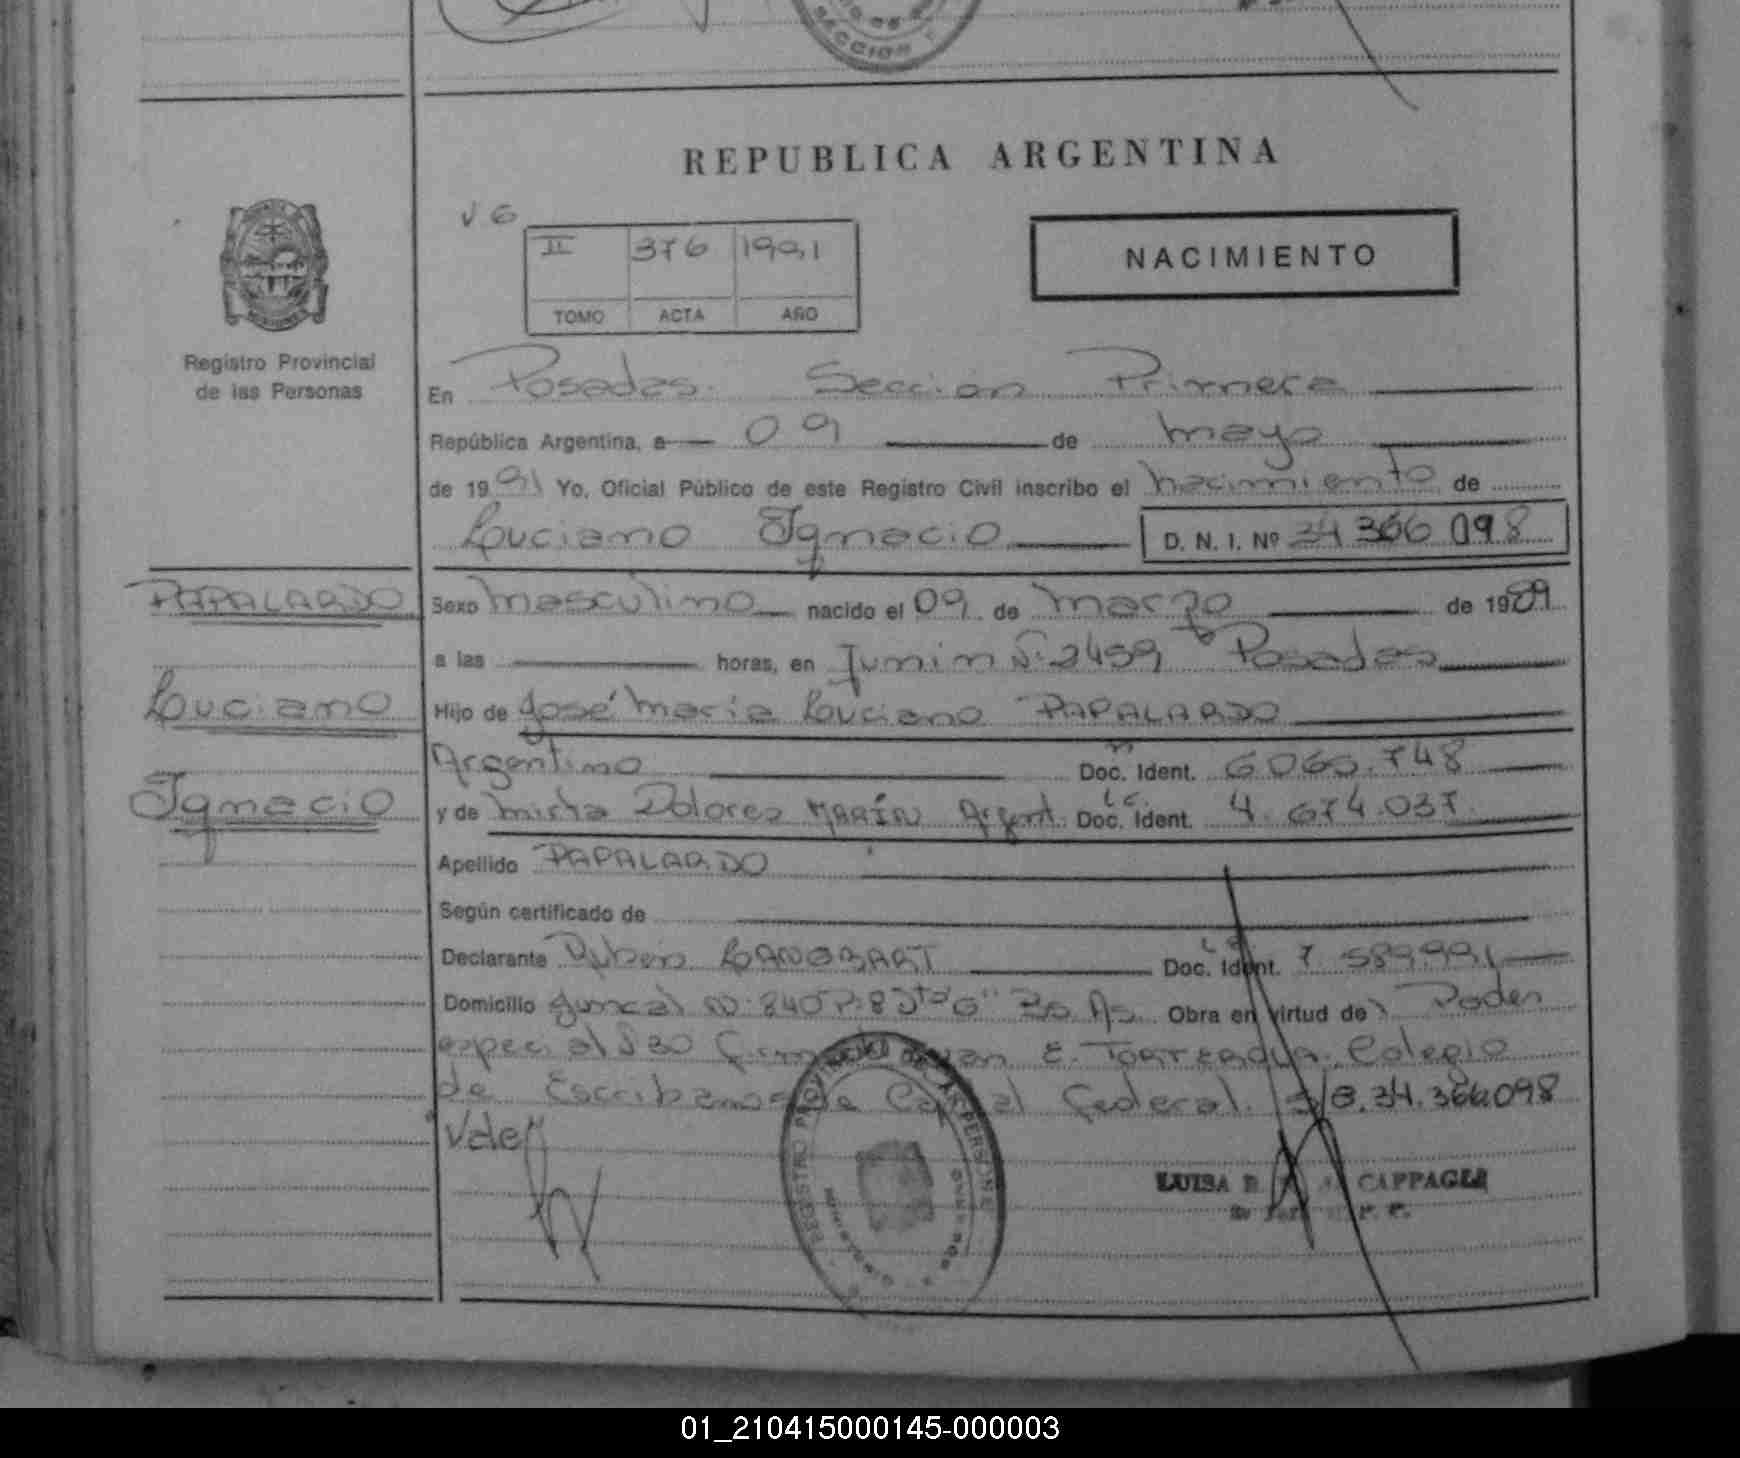 SECCION
REPUBLICA ARGENTINA
V 6
II 376 1991
TOMO ACTA AÑO
NACIMIENTO
Registro Provincial
de las Personas
En Posadas. Sección Primera
República Argentina, a 09 de mayo
de 1991 Yo, Oficial Público de este Registro Civil inscribo el nacimiento de
Luciano Ignacio D. N. I. Nº 34 366 098
PAPALARDO
Luciano
Ignacio
Sexo masculino nacido el 09 de marzo de 1989
a las horas, en Junin Nº 2459 Posadas
Hijo de José María Luciano PAPALARDO
Argentino Doc. Ident. 6060.748
y de Mirta Dolores MARÍN Argent. Doc. Ident. 4.674.037
Apellido PAPALARDO
Según certificado de
Declarante Rubén Doc. Ident. 7.589.991
Domicilio Juncal Nº 840 P: 8 Dto "G" Bs As. Obra en virtud de Poder
especial E. Colegio
de Escribanos de Capital Federal. 34.366.098
Vale
REGISTRO PROVINCIAL DE LAS PERSONAS
LUISA CAPPAGLI
01_210415000145-000003